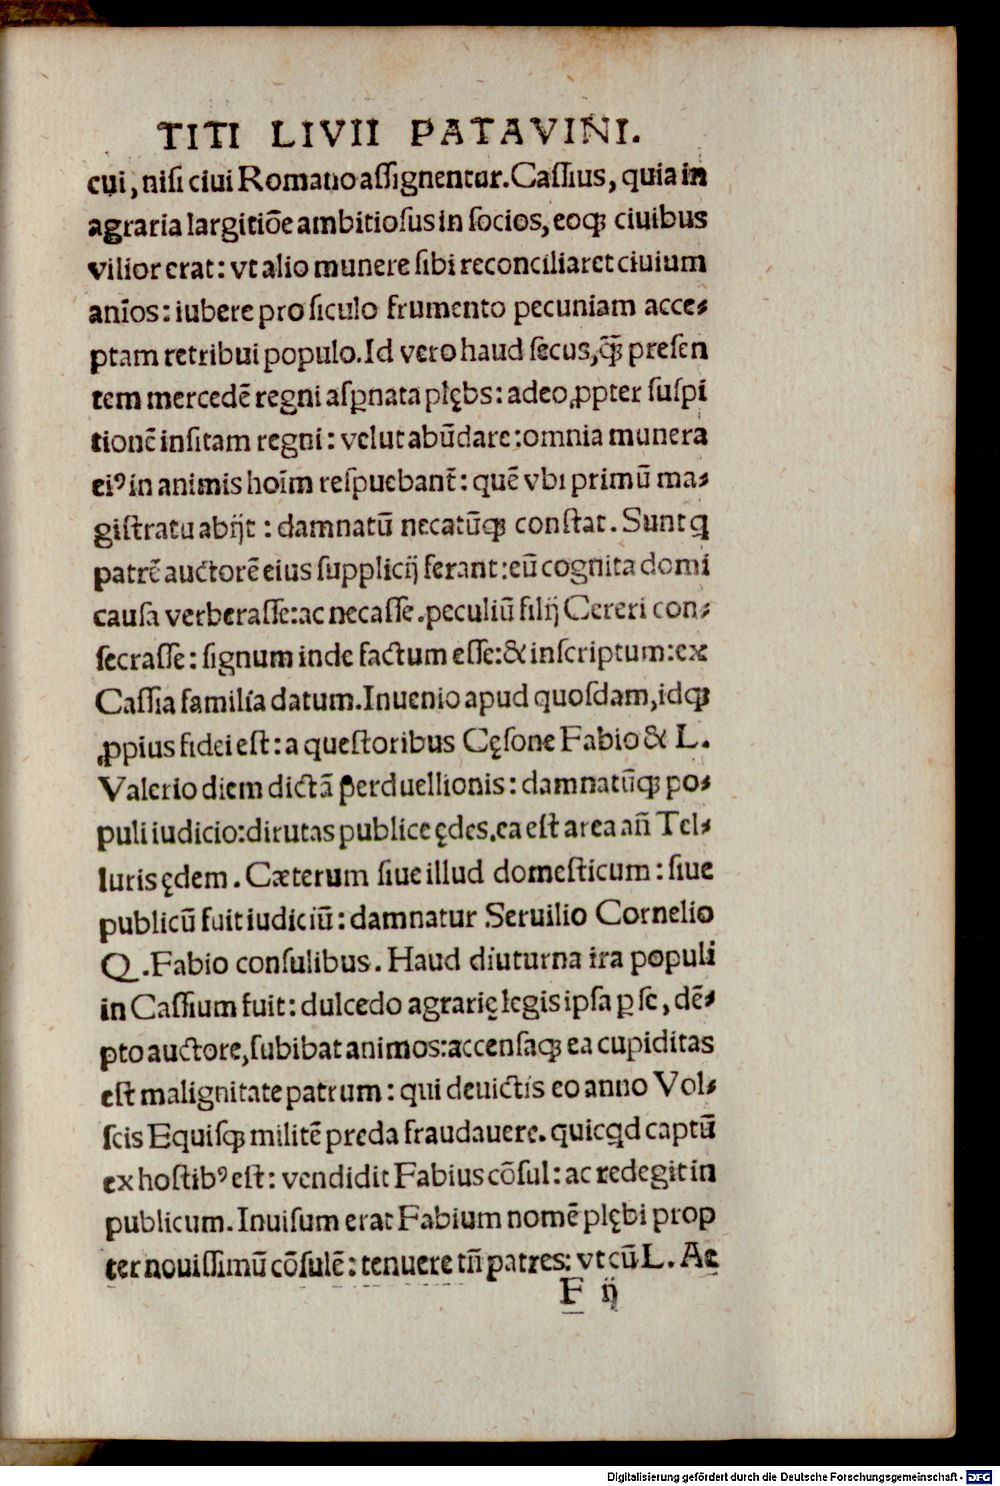 TITI LIVII PATAVINI.
cui, niſi ciui Romano aſſignentur. Caſſius, quia in
agraria largitiõe ambitioſus in ſocios, eoqꝫ ciuibus
vilior erat: vt alio munere ſibi reconciliaret ciuium
aĩos: iubere pro ſiculo frumento pecuniam acce-
ptam retribui populo. Id vero haud ſecus, q̃ꝫ preſen
tem mercedẽ regni aſꝑnata plębs: adeo ꝓpter ſuſpi
tionẽ inſitam regni: velut abũdare: omnia munera
eiꝰ in animis hoĩm reſpuebant̃: quẽ vbi primũ ma-
giſtratu abijt: damnatũ necatũqꝫ conſtat. Sunt ꝗ
patrẽ auctorẽ eius ſupplicij ferant: eũ cognita domi
cauſa verberaſſe: ac necaſſe. peculiũ filij Cereri con-
ſecraſſe: ſignum inde factum eſſe: & inſcriptum: ex
Caſſia familia datum. Inuenio apud quoſdam, idqꝫ
ꝓpius fidei eſt: a queſtoribus Cęſone Fabio & L.
Valerio diem dictã ꝑerduellionis: damnatũqꝫ po-
puli iudicio: dirutas publice ędes. ea eſt area añ Tel-
luris ędem. Cæterum ſiue illud domeſticum: ſiue
publicũ fuit iudiciũ: damnatur Seruilio Cornelio
Q. Fabio conſulibus. Haud diuturna ira populi
in Caſſium fuit: dulcedo agrarię legis ipſa ꝑ ſe, dẽ-
pto auctore, ſubibat animos: accenſaqꝫ ea cupiditas
eſt malignitate patrum: qui deuictis eo anno Vol-
ſcis Equiſqꝫ militẽ preda fraudauere. quicꝗd captũ
ex hoſtibꝰ eſt: vendidit Fabius cõſul: ac redegit in
publicum. Inuiſum erat Fabium nomẽ plębi prop
ter nouiſſimũ cõſulẽ: tenuere tñ patres: vt cũ L. Ae
F ij
Digitalisierung gefördert durch die Deutsche Forschungsgemeinschaft - DFG